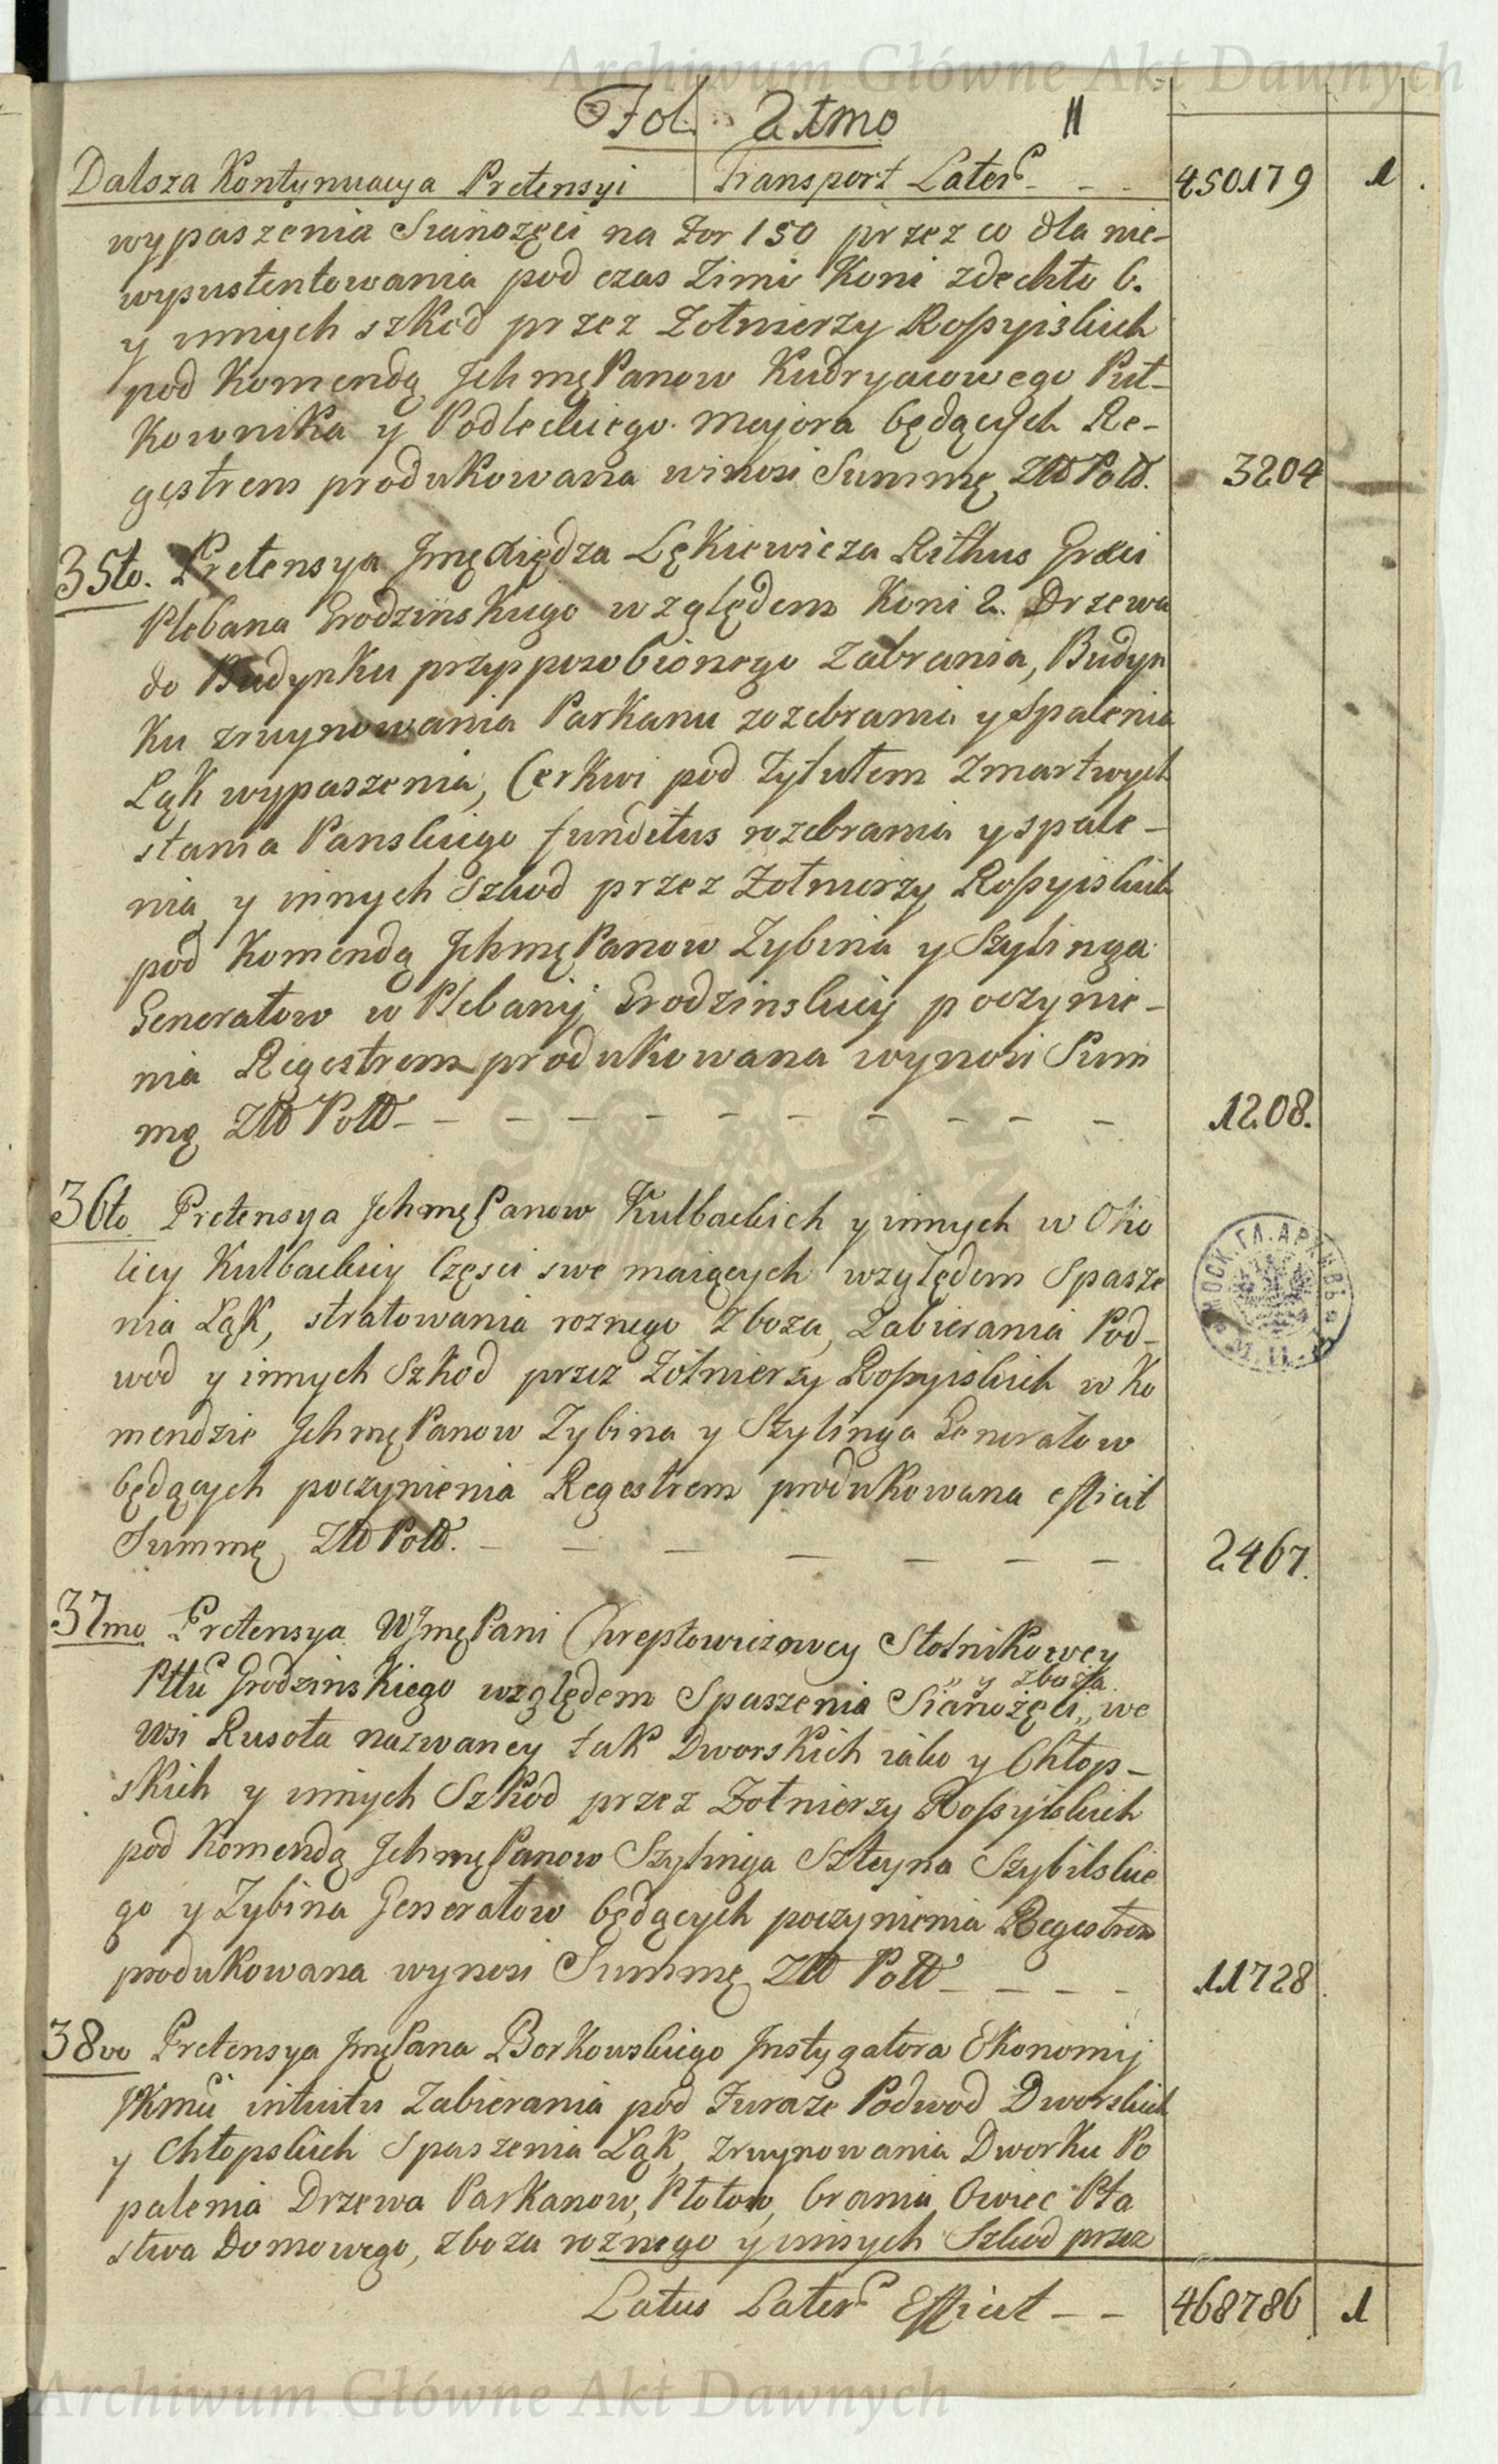 Archiwum Główne Akt Dawnych
Fol. 2tmo 11
Dalsza Kontynuacya Pretensyi Transport Later. - - 450179 1.
wypaszenia Sianożęci na Fur 150 przez co dla nie-
wypustentowania pod czas Zimi Koni zdechło 6.
y innych szkod przez Zołnierzy Rossyiskich
pod Komendą Jchmę Panow Kudryacowego Puł-
kownika y Podleckiego Majora będących Re-
gęstrem produkowana winosi Summę Złł Poll. 3204
35to. Pretensya Jmę Xiędza Lękiewicza Rithus Græci
Plebana Grodzinskiego względem Koni 2. Drzewa
do Budynku przypposobionego Zabrania, Budyn
ku zruynowania Parkanu rozebrania y Spalenia
Łąk wypaszenia, Cerkwi pod Tytułem Zmartwych
stania Panskiego funditus rozebrania y spale-
nia y innych Szkod przez Zołnierzy Rossyiskich
pod Komendą Jchmę Panow Zybina y Szylinga
Generałow w Plebanij Grodzinskiey poczynie-
nia Regestrem produkowana wynosi Sum
mę Złł Poll - - - - - - - - - - - 1208.
36to. Pretensya Jchmę Panow Kulbackich y innych w Oko
licy Kulbackiey Części swe maiących względem Spasze
nia Łąk, stratowania roznego Zboza, Zabierania Pod-
wod y innych Szkod przez Zołnierzy Rossyiskich w Ko
mendzie Jchmę Panow Zybina y Szylinga Generałow
będących poczynienia Regestrem produkowana efficit
Summę Złł Poll. - - - - - - - 2467.
37mo. Pretensya WJmę Pani Chreptowiczowey Stolnikowey
y zboża
Pttu Grodzinskiego względem Spaszenia Sianożęci,, we
Wsi Rusota nazwaney tak Dworskich iako y Chłop-
skich y innych Szkod przez Zołnierzy Rossyiskich
pod Komendą Jchmę Panow Szylinga Szteyna Szybilskie
go y Zybina Generałow będących poczynienia Regestrem
produkowana wynosi Summę Złł Poll - - - - 11728.
38vo Pretensya Jmę Pana Borkowskiego Jnstygatora Ekonomij
JKmći intuitu Zabierania pod Furaże Podwod Dworskich
y Chłopskich Spaszenia Łąk, zruynowania Dworku Po
palenia Drzewa Parkanow, Płotow, brania Owiec Pta
stwa Domowego, zboza roznego y innych Szkod przez
Latus Later. Efficit - - 468786 1
МОСК. ГЛ. АРХИВЪ
Archiwum Główne Akt Dawnych